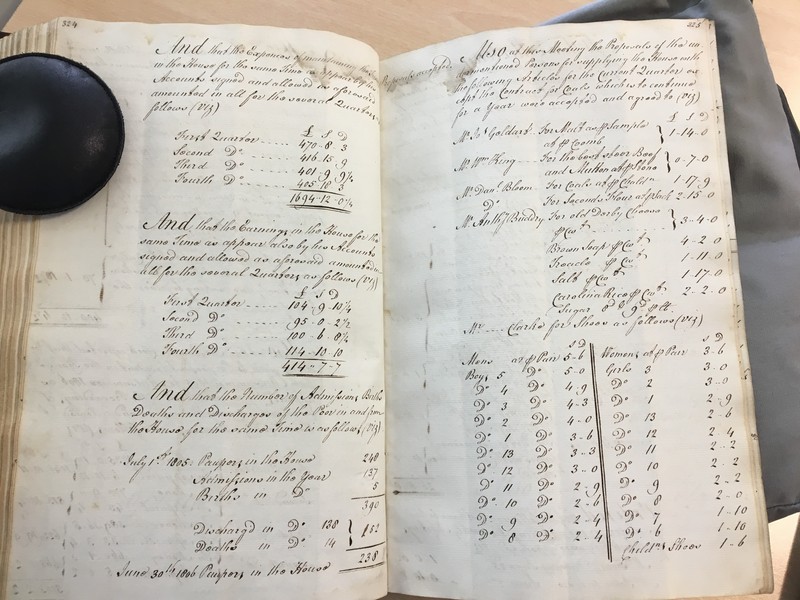 324
And that the Expences of maintaining the
in the House for the same Time as appear by the
Accounts signed and allowed as aforesaid
amounted in all for the several Quarters
follows (Viz)
£ S D
First Quarter 470 - 8 - 3
Second Do 416 - 15 - 9
Third Do 401 - 9 - 9¼
Fourth Do 405 - 18 - 3
1694 - 12 - 0¼
And that the Earnings in the House for the
same Time as appear also by his Accounts
signed and allowed as aforesaid amounted in
all for the several Quarters as follows (Viz)
£ S D
First Quarter 104 - 9 - 10¼
Second Do 95 - 0 - 2½
Third Do 100 - 6 - 8¼
Fourth Do 114 - 10 - 10
414 - 7 - 7
And that the Number of Admissions Births
Deaths and Discharges of the Poor in and from
the House for the same Time is as follows (Viz)
July 1st 1805 Paupers in the House 248
Admissions in the Year 137
Births in Do 5
390
Discharg'd in Do 138 } 152
Deaths in Do 14
238
June 30th 1806 Paupers in the House
325
Proposals accepted
Also at this Meeting the Proposals of the un
dermentioned Persons for supplying the House with
the following Articles for the Current Quarter ex
cept the Contract for Coals which is to continue
for a Year were accepted and agreed to (Viz)
£ S D
Mr Jas Goldart For Malt as p Sample
at p Coomb } 1 - 14 - 0
Mr Wm King For the best Ox or Beef
and Mutton at p Stone } 0 - 7 - 0
Mr Danl Bloom For Coals at p Chaldn 1 - 17 - 9
Do For Seconds Flour at p Sack 2 - 15 - 0
Mr Anthy Buadry For old Derby Cheese
p Cwt } 3 - 4 - 0
Brown Soap p Cwt 4 - 2 - 0
Treacle p Cwt 1 - 11 - 0
Salt p Cwt 1 - 17 - 0
Carolina Rice p Cwt 2 - 2 - 0
Sugar 8d 9d p lb
Mr Clarke for Shoes as follows (Viz)
S D
Mens at p Pair 5 - 6
Boys 5 Do 5 - 0
Do 4 Do 4 - 9
Do 3 Do 4 - 3
Do 2 Do 4 - 0
Do 1 Do 3 - 6
Do 13 Do 3 - 3
Do 12 Do 3 - 0
Do 11 Do 2 - 9
Do 10 Do 2 - 6
Do 9 Do 2 - 4
Do 8 Do 2 - 4
S D
Womens at p Pair 3 - 6
Girls 3 3 - 0
Do 2 3 - 0
Do 1 2 - 9
Do 13 2 - 6
Do 12 2 - 4
Do 11 2 - 2
Do 10 2 - 2
Do 9 2 - 2
Do 8 2 - 0
Do 7 1 - 10
Do 6 1 - 10
Childns Shoes 1 - 6